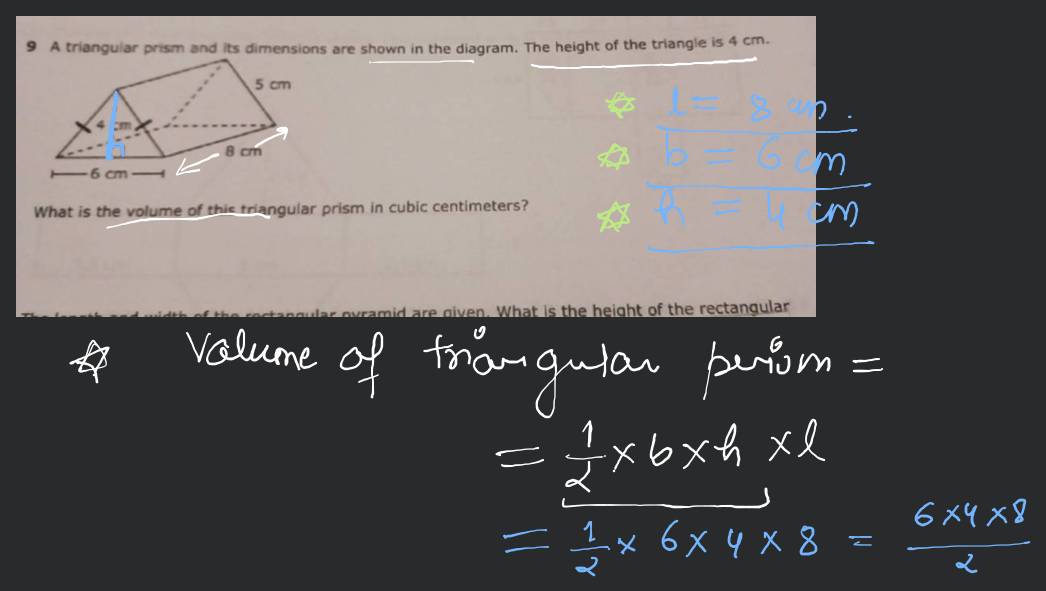 9 A triangular prism and its dimensions are shown in the diagram. The height of the triangle is 4 cm.
5 cm
4 cm
h
8 cm
6 cm
What is the volume of this triangular prism in cubic centimeters?
l = 8 cm.
b = 6 cm
h = 4 cm
The length and width of the rectangular pyramid are given. What is the height of the rectangular
Volume of triangular perism =
= 1/2 × b × h × l
= 1/2 × 6 × 4 × 8 = 6×4×8/2